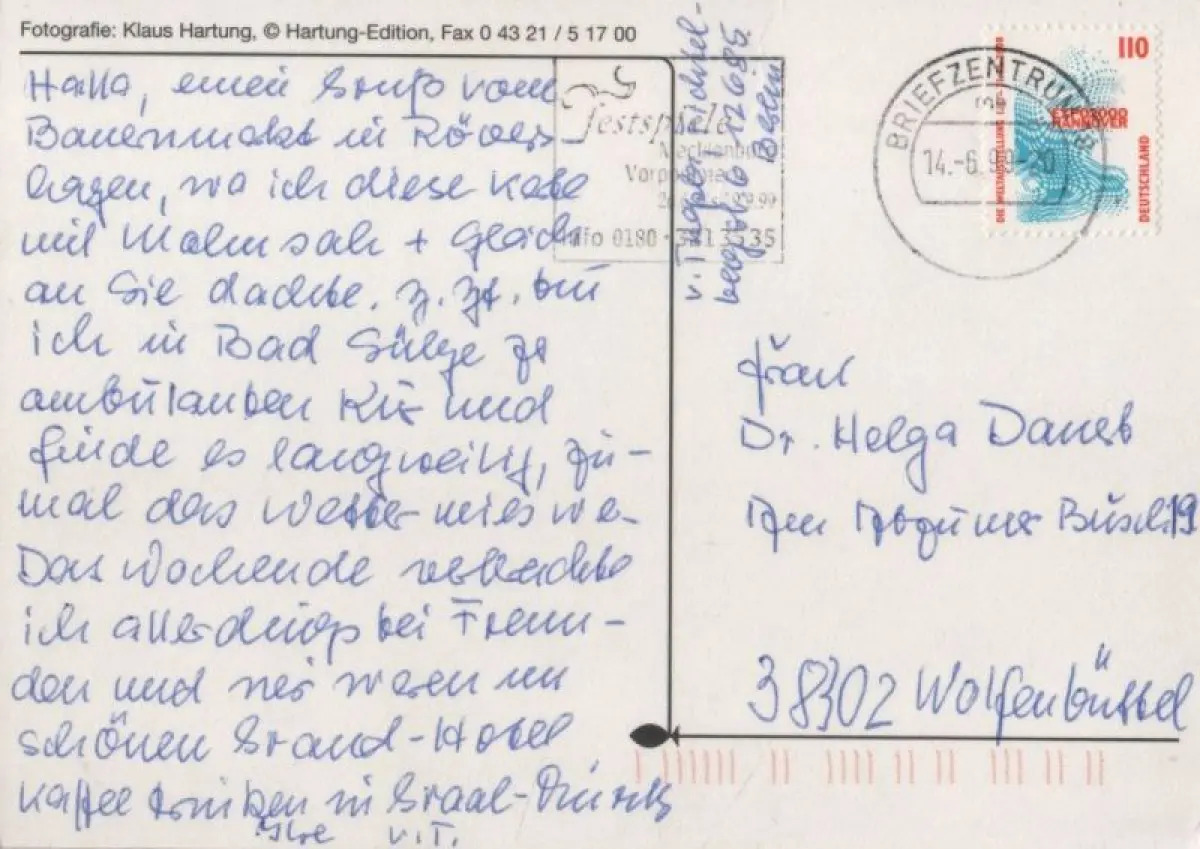 Fotografie: Klaus Hartung, © Hartung-Edition, Fax 0 43 21 / 5 17 00
Hallo, einen Gruß vom
Bauernmarkt in Rövers-
hagen, wo ich diese Karte
mit Mohn sah + gleich
an Sie dachte. Z. Zt. bin
ich in Bad Sülze zr
ambulanten Kur und
finde es langweilig, zu-
mal das Wetter mies
Das Wochende verbrachte
ich allerdings bei Freun-
den und wir waren im
schönen Grand-Hotel
Kaffee trinken in Graal-Müritz
Ihre v.T.
festspiele
Mecklenburg
Vorpommern
Info 0180-
v. T
12685
Berlin
BRIEFZENTRUM
14.-6.99-20
110
DIE WELTAUSSTELLUNG
HANNOVER
DEUTSCHLAND
Frau
Dr. Helga Daneb
19
38302 Wolfenbüttel